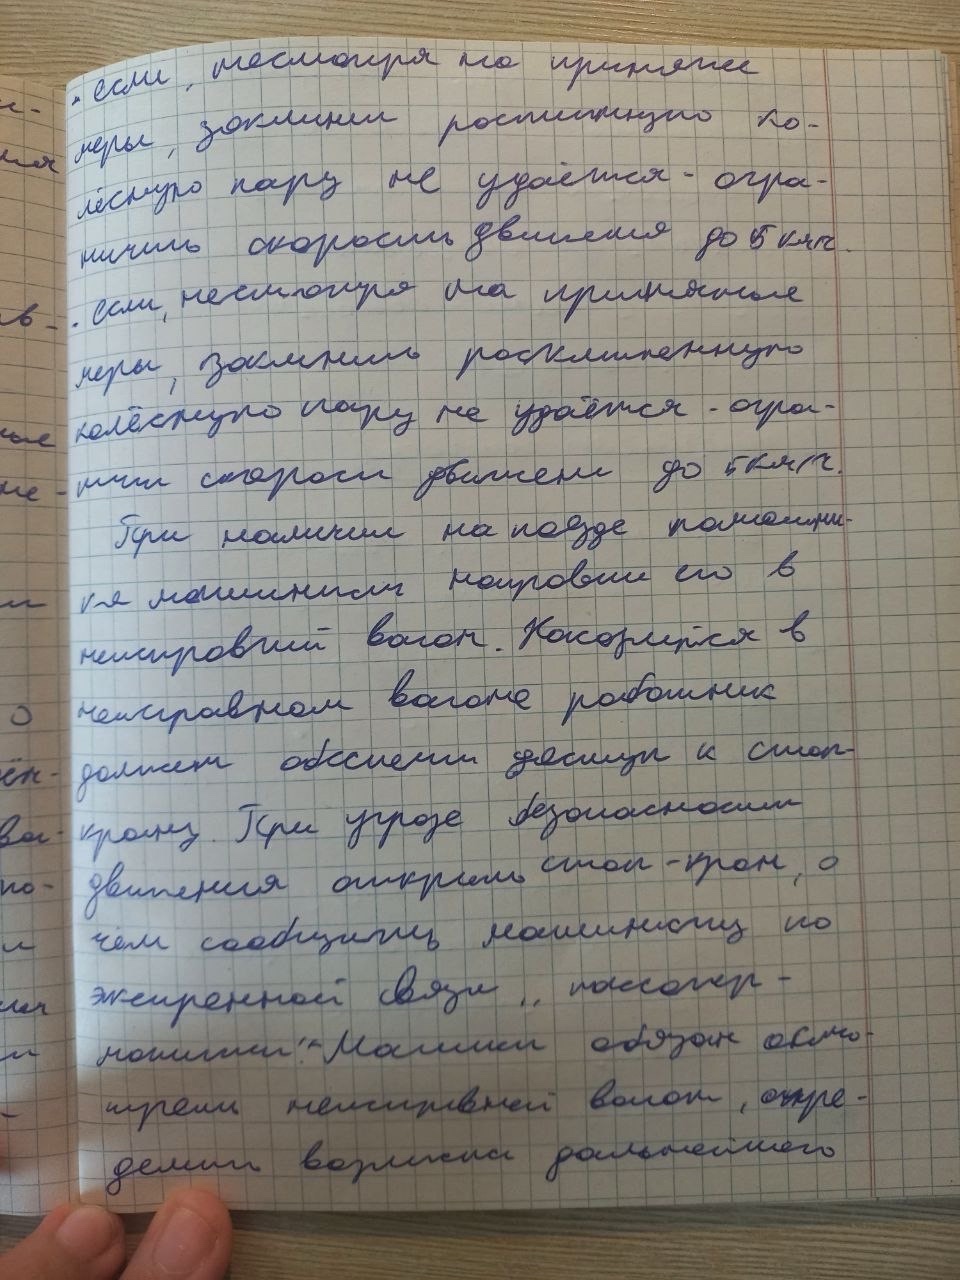 - если, несмотря на приняты
меры, заклинил расклинную ко-
лёсную пару не удаётся - огра-
ничить скорость движения до 5 км/ч.
- если, несмотря на принятые
меры, заклинить расклиненную
колёсную пару не удаётся - огра-
ничи скорос движени до 5 км/ч.
При наличии на поезде помощни-
ка машинист направит его в
неисправный вагон. Находящейся в
неисправном вагоне работник
должен обеспечи доступ к стоп-
крану. При угрозе безопасности
движения открыть стоп-кран, о
чём сообщить машинисту по
экстренной связи „пассажир-
машинист". Машинист обязан осмо-
треть неисправный вагон, опре-
делить возможно дальнейшего